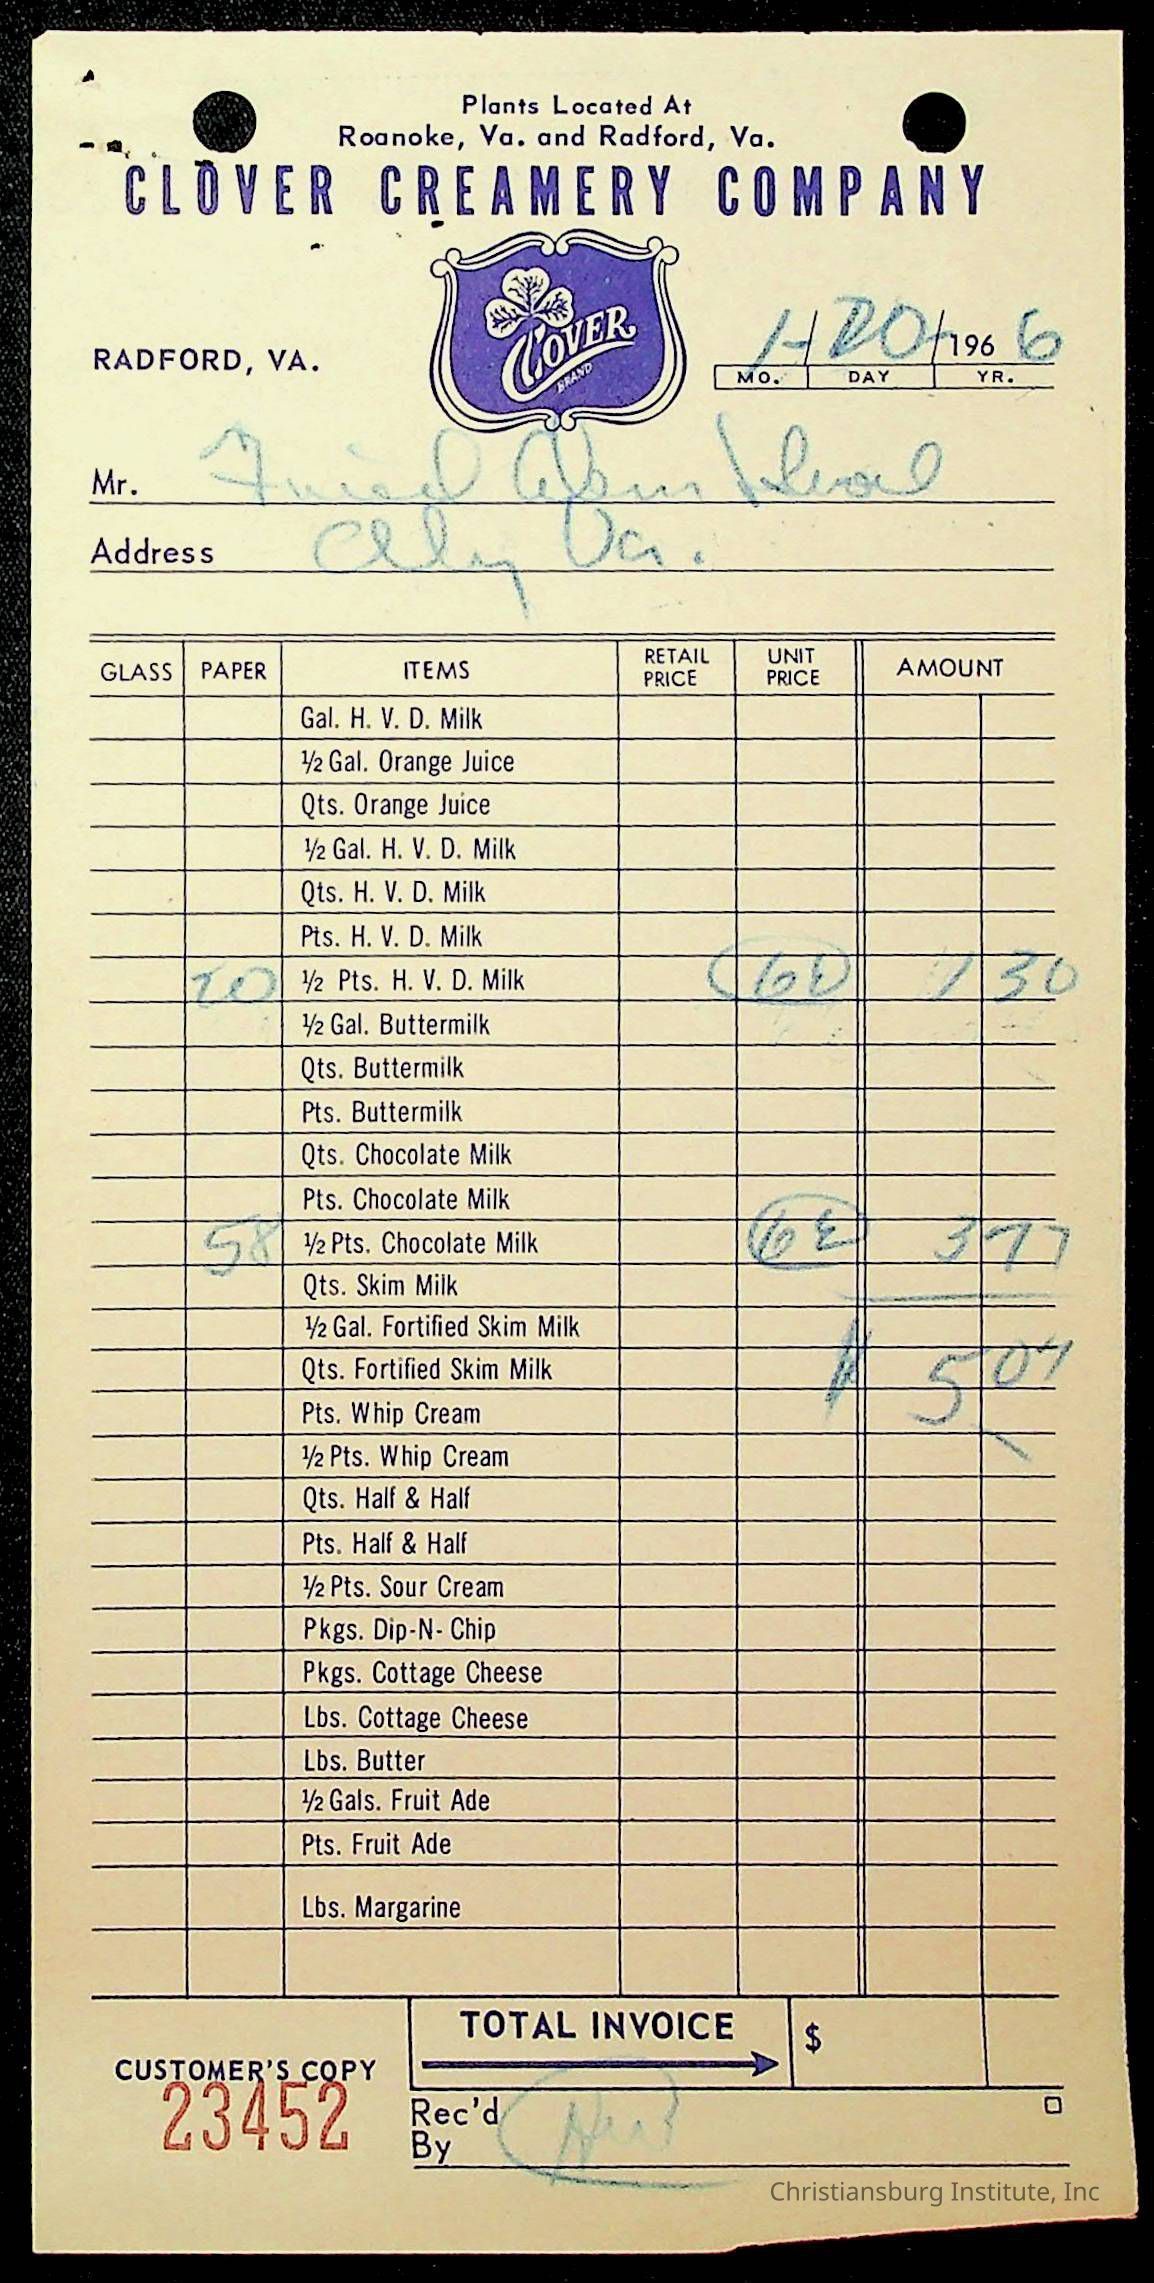 Plants Located At
Roanoke, Va. and Radford, Va.
CLOVER CREAMERY COMPANY
CLOVER
BRAND
RADFORD, VA.
1-20-1966
MO. DAY YR.
Mr.
Address Va.
GLASS PAPER ITEMS RETAIL PRICE UNIT PRICE AMOUNT
Gal. H. V. D. Milk
½ Gal. Orange Juice
Qts. Orange Juice
½ Gal. H. V. D. Milk
Qts. H. V. D. Milk
Pts. H. V. D. Milk
20 ½ Pts. H. V. D. Milk 1 30
½ Gal. Buttermilk
Qts. Buttermilk
Pts. Buttermilk
Qts. Chocolate Milk
Pts. Chocolate Milk
58 ½ Pts. Chocolate Milk 3 77
Qts. Skim Milk
½ Gal. Fortified Skim Milk
Qts. Fortified Skim Milk 5 07
Pts. Whip Cream
½ Pts. Whip Cream
Qts. Half & Half
Pts. Half & Half
½ Pts. Sour Cream
Pkgs. Dip-N-Chip
Pkgs. Cottage Cheese
Lbs. Cottage Cheese
Lbs. Butter
½ Gals. Fruit Ade
Pts. Fruit Ade
Lbs. Margarine
TOTAL INVOICE $
CUSTOMER'S COPY
23452
Rec'd
By
Christiansburg Institute, Inc